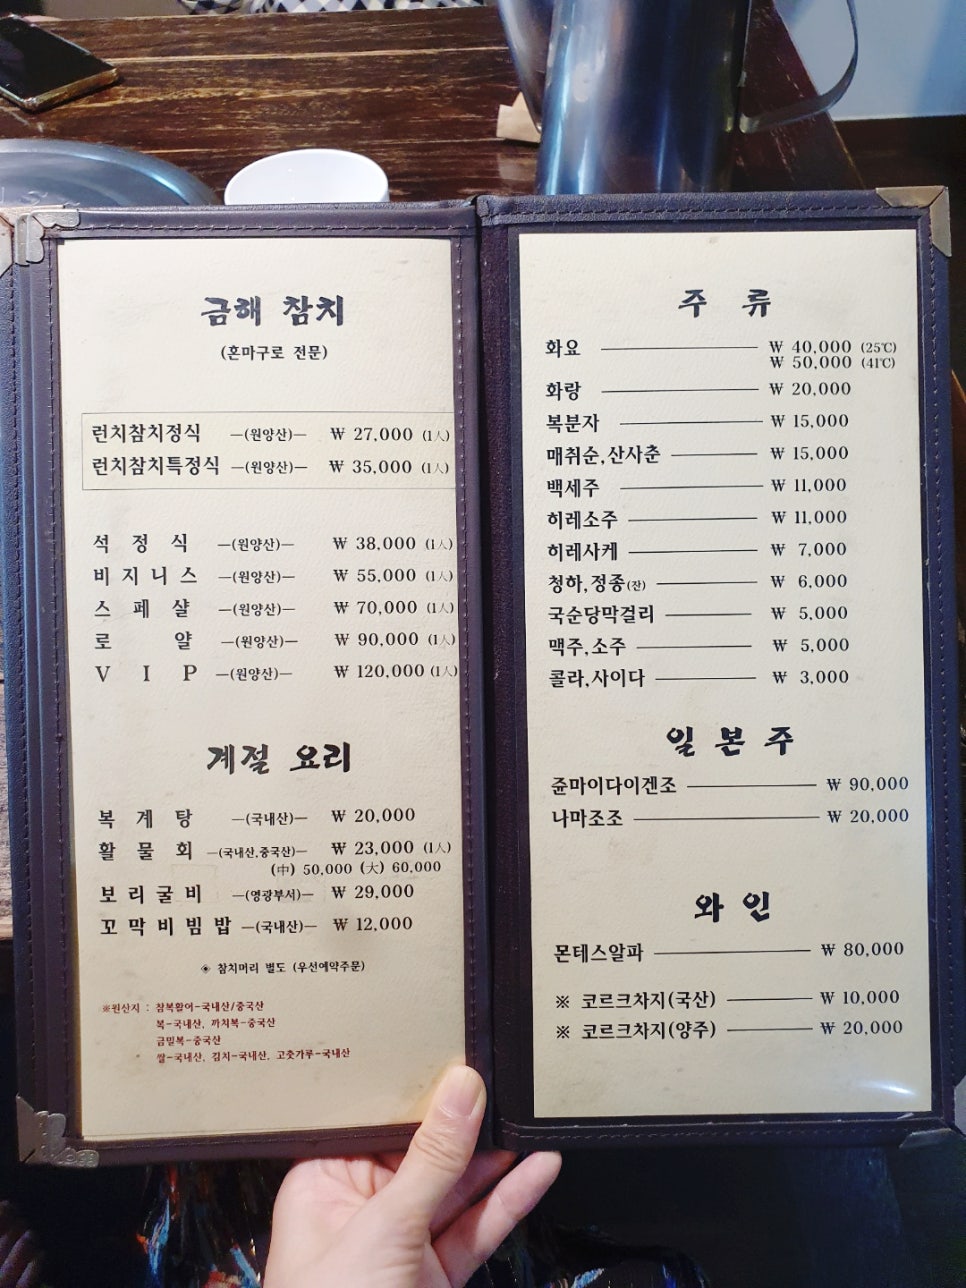 금해 참치
(혼마구로 전문)
런치참치정식 —(원양산)— ₩ 27,000 (1人)
런치참치특정식 —(원양산)— ₩ 35,000 (1人)
석 정 식 —(원양산)— ₩ 38,000 (1人)
비 지 니 스 —(원양산)— ₩ 55,000 (1人)
스 페 샬 —(원양산)— ₩ 70,000 (1人)
로 얄 —(원양산)— ₩ 90,000 (1人)
V I P —(원양산)— ₩ 120,000 (1人)
계절 요리
복 계 탕 —(국내산)— ₩ 20,000
활 물 회 —(국내산,중국산)— ₩ 23,000 (1人)
(中) 50,000 (大) 60,000
보 리 굴 비 —(영광부서)— ₩ 29,000
꼬 막 비 빔 밥 —(국내산)— ₩ 12,000
◈ 참치머리 별도 (우선예약주문)
※원산지 : 참복활어-국내산/중국산
복-국내산, 까치복-중국산
금밀복-중국산
쌀-국내산, 김치-국내산, 고춧가루-국내산
주 류
화요 ₩ 40,000 (25℃)
₩ 50,000 (41℃)
화랑 ₩ 20,000
복분자 ₩ 15,000
매취순,산사춘 ₩ 15,000
백세주 ₩ 11,000
히레소주 ₩ 11,000
히레사케 ₩ 7,000
청하,정종(잔) ₩ 6,000
국순당막걸리 ₩ 5,000
맥주,소주 ₩ 5,000
콜라,사이다 ₩ 3,000
일 본 주
쥰마이다이겐조 ₩ 90,000
나마조조 ₩ 20,000
와 인
몬테스알파 ₩ 80,000
※ 코르크차지(국산) ₩ 10,000
※ 코르크차지(양주) ₩ 20,000